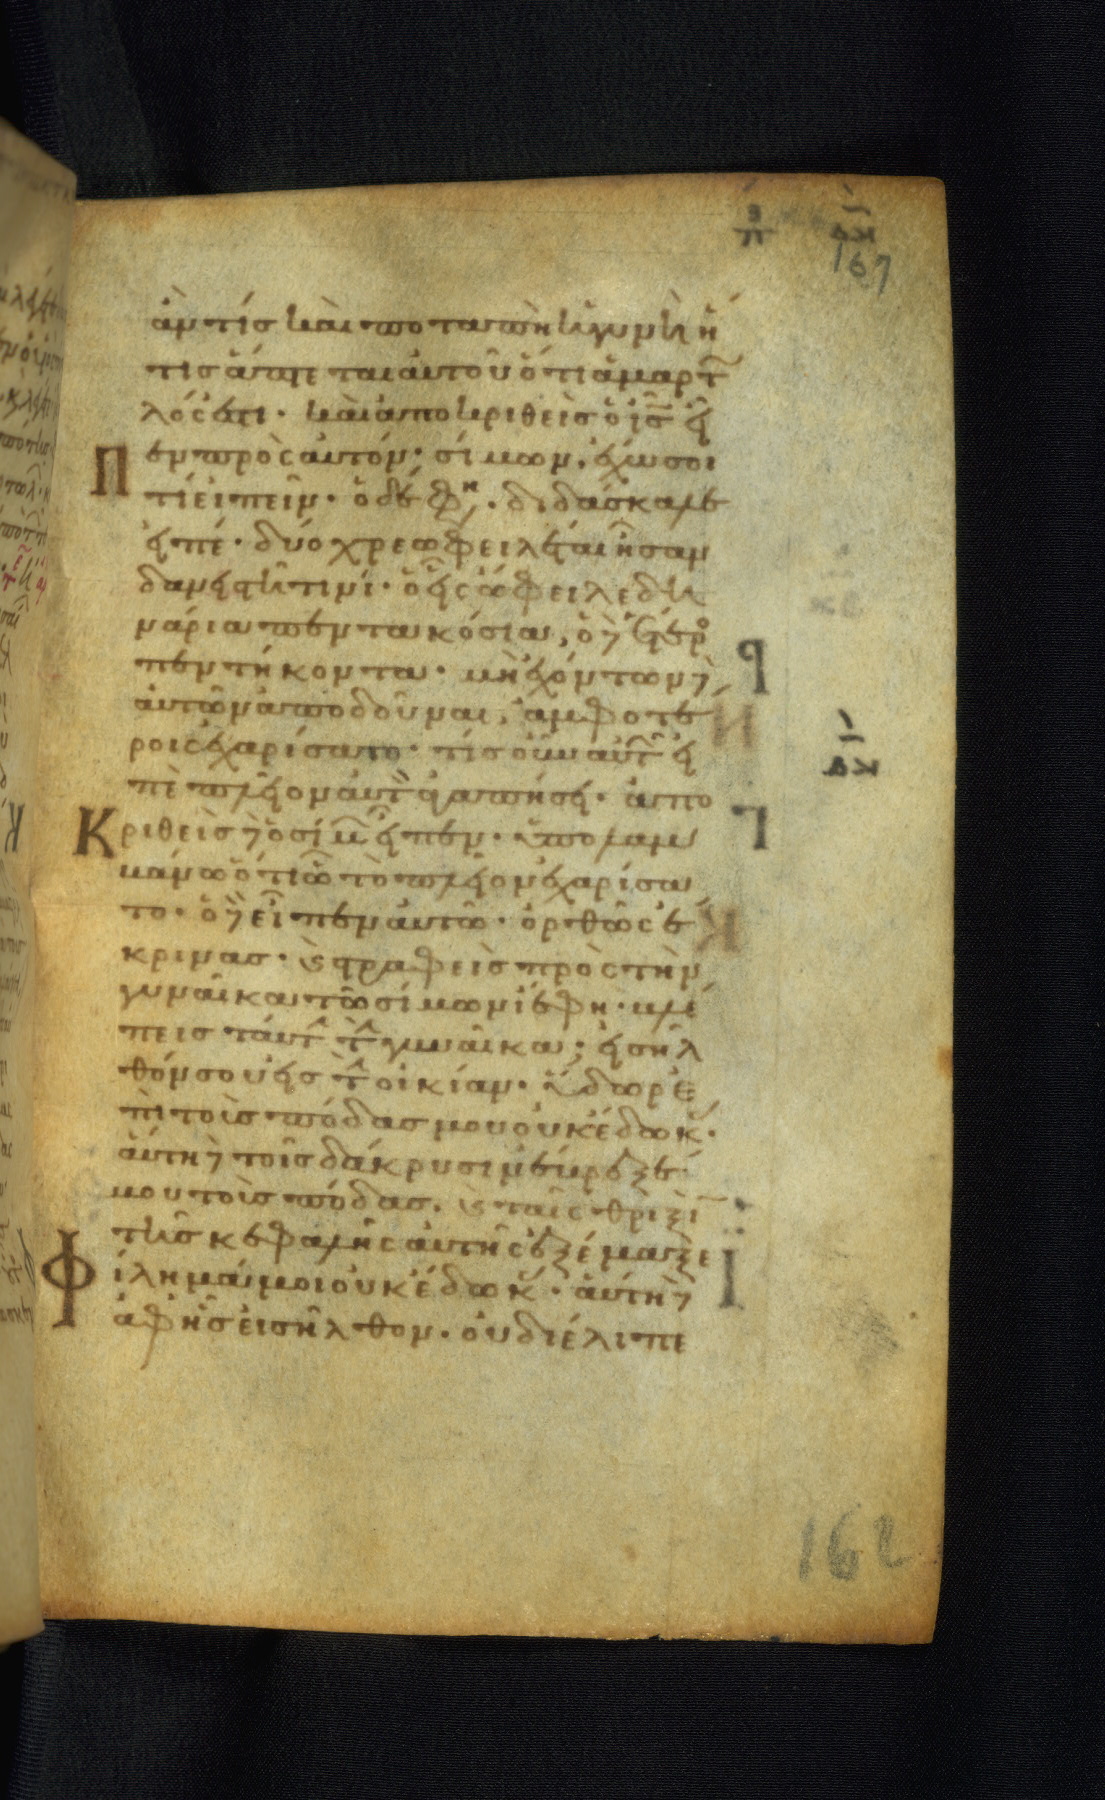 ἂν τίσ και ποταπὴ ἡ γυνὴ ἥ
τισ ἅπτεται αὐτοῦ ὅτι ἁμαρτ
λός ἐστι· και ἀποκριθεὶσ ὁ ις εἶ
πεν πρὸς αὐτόν· σίμων, ἔχω σοι
τί εἰπεῖν· ὁ δέ φη,· διδάσκαλε
εἰπέ· δύο χρεωφειλέται ἦσαν
δανειστῆ τινί· ὁ εἷς ὤφειλε δη
νάρια πεντακόσια, ὁ δὲ ἕτερο
πεντήκοντα· μὴ ἐχόντων δὲ
αὐτῶν ἀποδοῦναι, ἀμφοτέ
ροις ἐχαρίσατο· τίσ οὖν αὐτῶν εἰ
πὲ πλεῖον αὐτὸν ἀγαπήσει· ἀπο
κριθεὶσ δὲ ὁ σίμων εἶπεν· ὑπολαμ
βάνω ὅτι ὧ τὸ πλεῖον ἐχαρίσα
το· ὁ δὲ εἶπεν αὐτῶ· ὀρθῶς ἔ
κρινας· καὶ στραφεὶς πρὸς τὴν
γυναῖκα τῶ σίμωνι ἔφη· βλέ
πεις ταύτην τὴν γυναῖκα; εἰσῆλ
θόν σου εἰς τὴν οἰκίαν· ὕδωρ ἐ
πὶ τοὺς πόδας μου οὐκ ἔδωκας·
αὕτη δὲ τοῖς δάκρυσιν ἔβρεξέ
μου τοὺς πόδας. καὶ ταῖς θριξὶ
τῆς κεφαλῆς αὐτῆς ἐξέμαξε
φίλημά μοι οὐκ ἔδωκας· αὕτη δὲ
ἀφ' ἧς εἰσῆλθον· οὐ διέλιπε
167
162